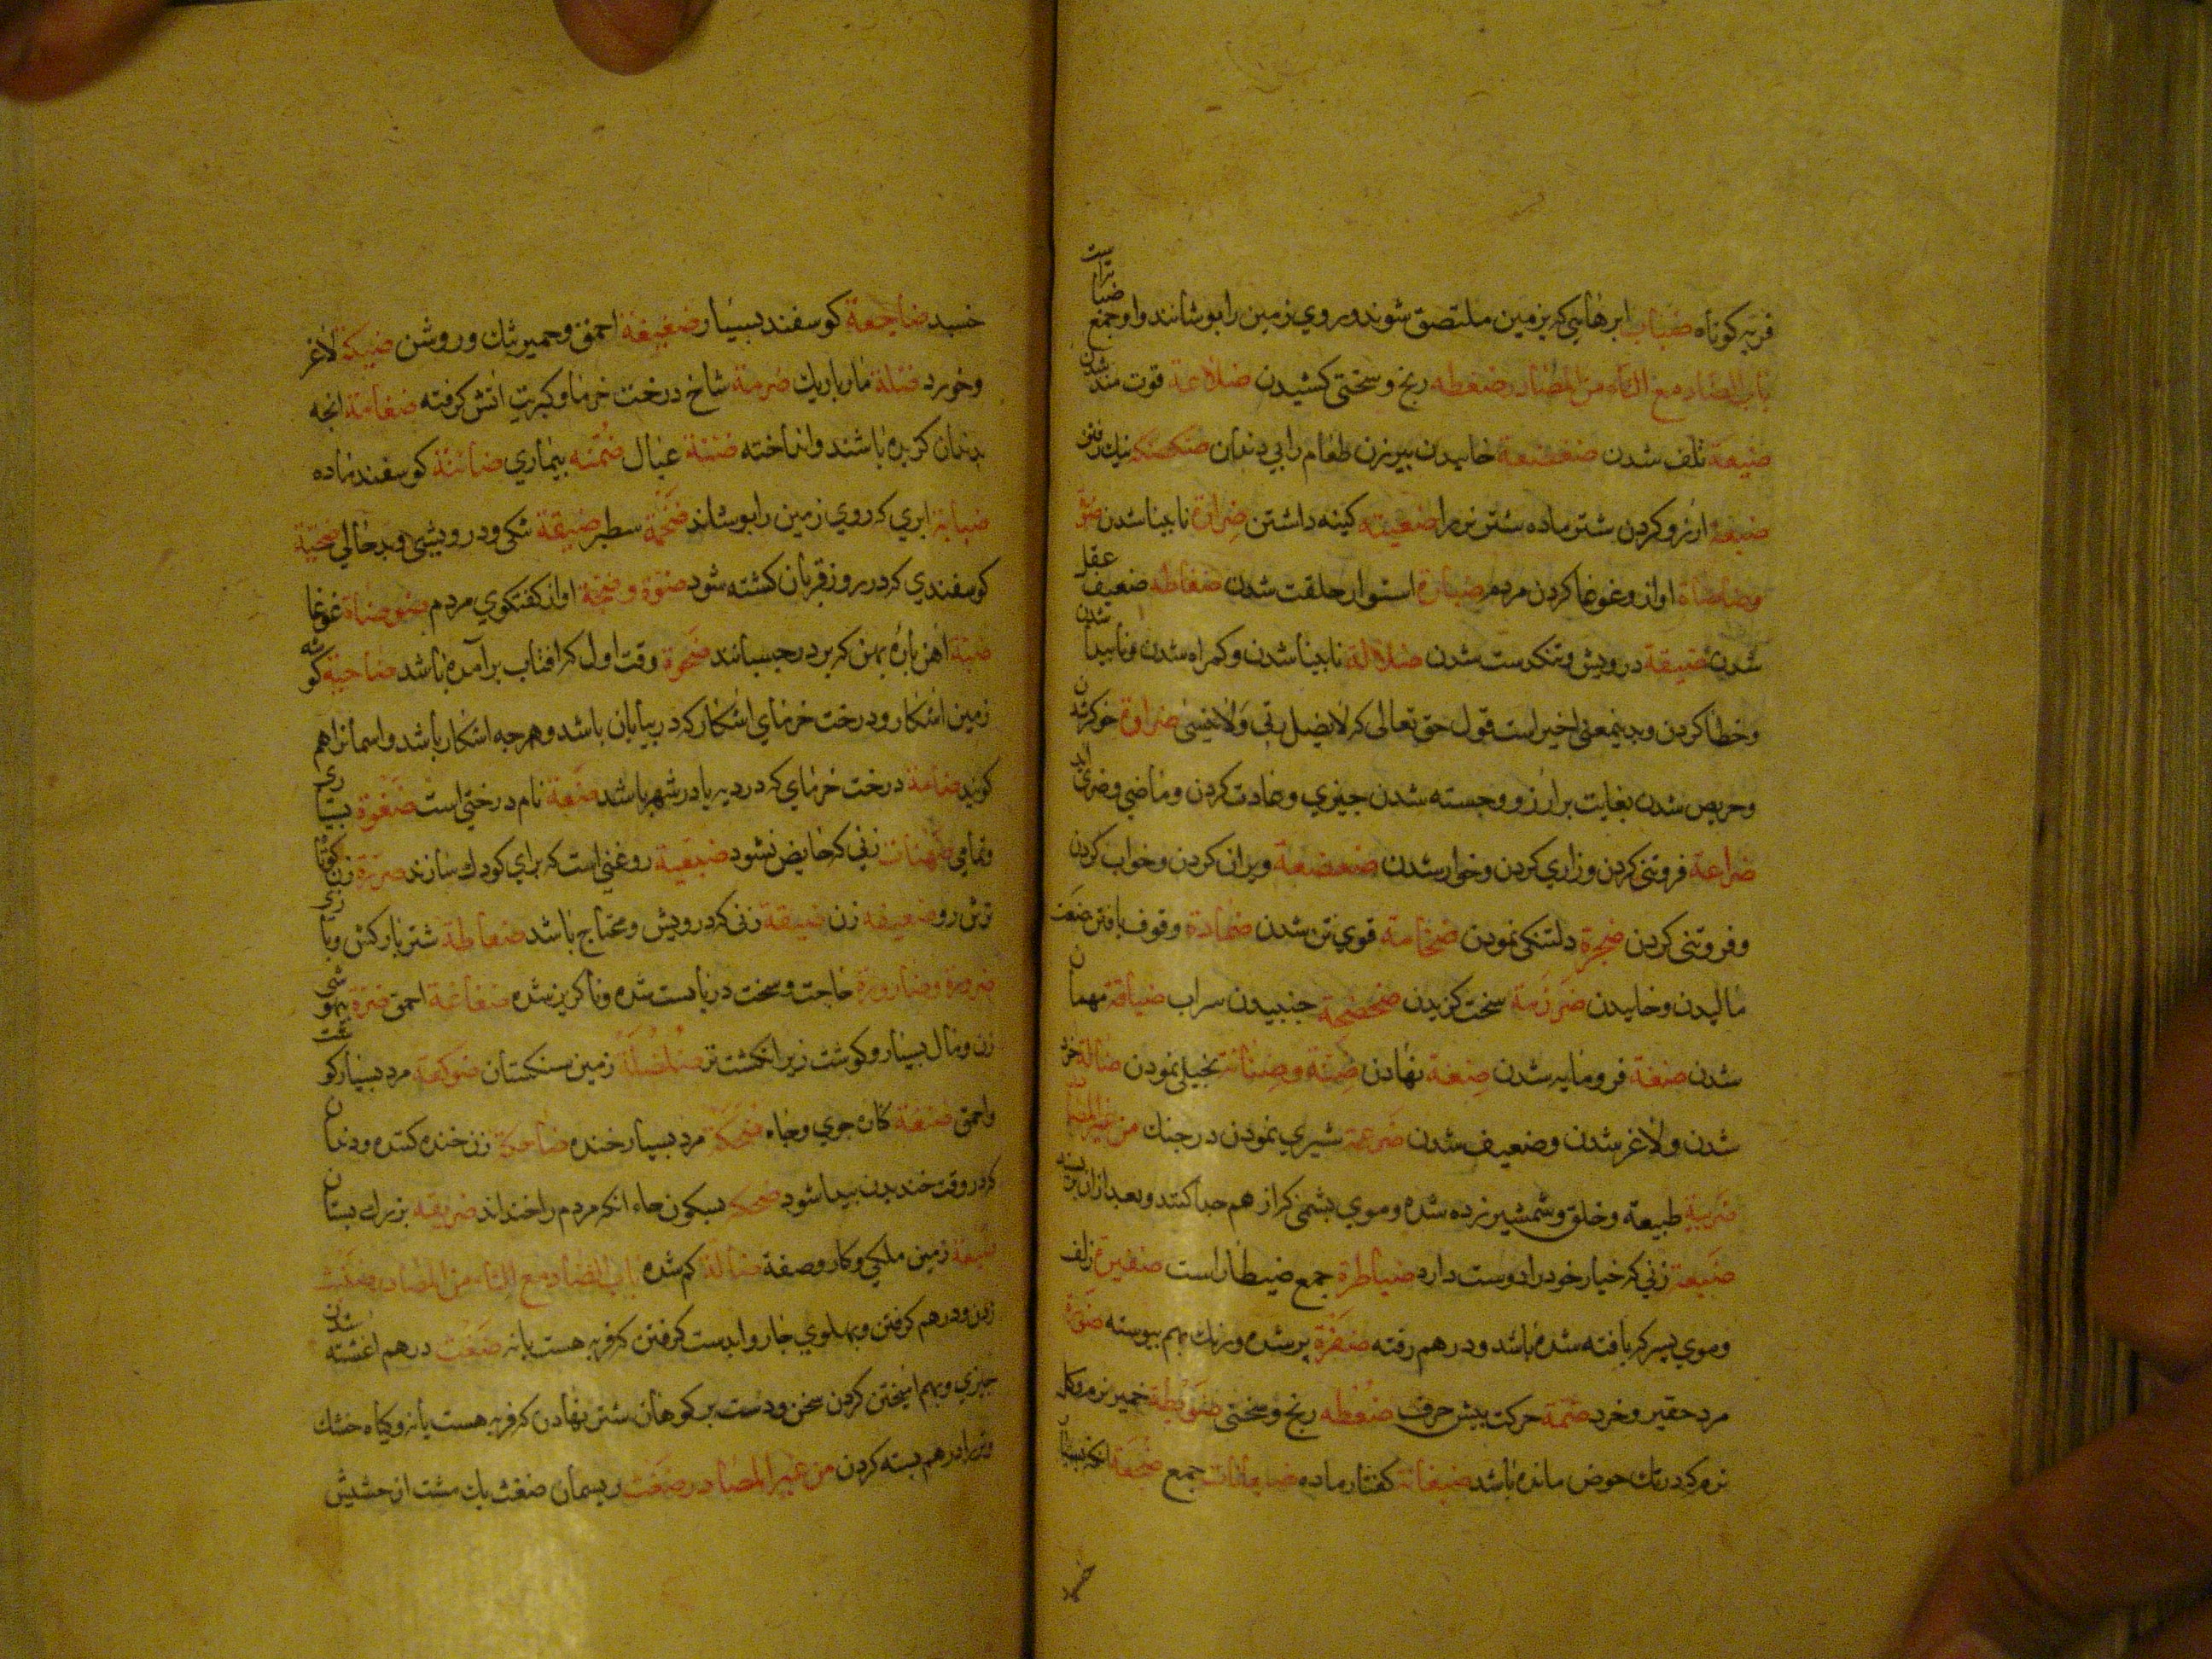 فربه کوتاه ضباب ابرهایی که بزمین ملتصق شوند و روی زمین را بپوشانند واو جمع ضبابة است
باب الضاد مع التاء من المصادر ضغطه رنج و سختی کشیدن ضلاعة قوت مند شدن
ضیعة تلف شدن ضغضغة خاییدن پیر زن طعام را بی دندان ضکضکة نیك رفتن
ضبعة ارزو کردن شتر ماده شتر نر را ضغینه کینه داشتن ضرارة نابینا شدن
وضاضاة اواز و غوغا کردن مردم ضبارة استوار خلقت شدن ضفاطه ضعیف عقل
شدن ضیقة درویش و تنکدست شدن ضلالة نابینا شدن و کمراه شدن و ناپیدا شدن
وخطا کردن و بدینمعنی اخیر است قول حق تعالی که لا یضل ربی ولا ینسی ضراوة خو کردن
وحریص شدن بغایت بر ارزو و جسته شدن چیزی و عادت کردن و ماضی وضری
ضراعة فروتنی کردن و زاری کردن و خوار شدن ضعضعة ویران کردن و خراب کردن
وفروتنی کردن ضجرة دلتنکی نمودن ضخامة قوی تن شدن ضمادة وقوف یافتن
مالیدن و خاییدن ضرزمة سخت کزیدن ضحضحة جنبیدن سراب ضیافة مهمان
شدن ضعة فرومایه شدن ضعة نهادن ضنة وضنانة بخیلی نمودن ضالة
شدن و لاغر شدن و ضعیف شدن ضرغمة شیری نمودن در جنك من غیر المصادر
ضریبة طبیعة و خلق و شمشیر زده شده و موی پشمی که از هم جدا کنند و بعد ازان
ضبعة زنی که خیار خود را دوست دارد ضیاطرة جمع ضیطار است ضفیرة زلف
وموی پسر که بافته شده باشد و در هم رفته ضفزة پر شده و ریك بهم پیوسته
مرد حقیر و خرد ضمة حرکت پیش حرف ضغطه رنج و سختی ضویطة خمیر نرم و کل
نرم که در تك حوض مانده باشد ضبعانة کفتار ماده ضبعانات جمع ضجعة
خسبد ضاجعة کوسفند بسیار ضغیغة احمق و خمیر تنك و روشن ضییکة لاغر
وخورد ضئلة مار باریك ضرمة شاخ درخت خرما و کبریت اتش کرفته ضغامة انچه
بدندان کزیده باشند و انداخته ضبنة عیال ضمنه بیماری ضائنة کوسفند ماده
ضبابة ابری که روی زمین را بپوشاند ضخمة سطبر ضیقة تنکی و درویشی و بد حالی ضحیة
کوسفندی که در روز قربان کشته شود ضوة و ضجة اواز کفتکوی مردم ضوضاة غوغا
ضبة اهن پاره پهن که بر در چسپانند ضحوة وقت اول که افتاب بر آمده باشد ضاحیة کوشه
زمین اشکار و درخت خرمای اشکار که در بیابان باشد و هر چه اشکار باشد و اسمانرا هم
کویند ضامنة درخت خرمای که در دیه یا در شهر باشد ضعة نام درختی است ضغوة بسیاری
وتمامی ضهیات زنی که حایض نشود ضیقیة روغنی است که برای کودك سازند ضرزة زن کوتاه
ترش رو ضعیفه زن ضیقة زنی که درویش و محتاج باشد ضفاطة شتر بارکش و باری
ضرورة وضارورة حاجت و سخت دربایست شده و ناکزیر شده ضفاغة احمق ضرة بهوشی
زن و مال بسیار و کوشت زیر انکشت نر ضلضلة زمین سنکستان ضوکعة مرد بسیار کوشت
واحمق ضفة کناره جوی و چاه ضحکة مرد بسیار خنده ضاحکة زن خنده کننده و دندان
که در وقت خندیدن پیدا شود ضحکه بسکون حاء انکه مردم را خنداند ضریعه بزرك پستان
ضیعة زمین ملکی و کار و صفة ضالة کم شده باب الضاد مع الثاء من المصادر ضبث
زدن و در هم کرفتن و پهلوی چاروا بدست کرفتن که فربه هست یا نه ضغث درهم اغشته شدن
چیزی و بهم امیختن کردن سخن و دست بر کوهان شتر نهادن که فربه هست یا نه و کیاه خشك
وتر را درهم بسته کردن من غیر المصادر ضغث ریسمان ضغث یك مشت از حشیش